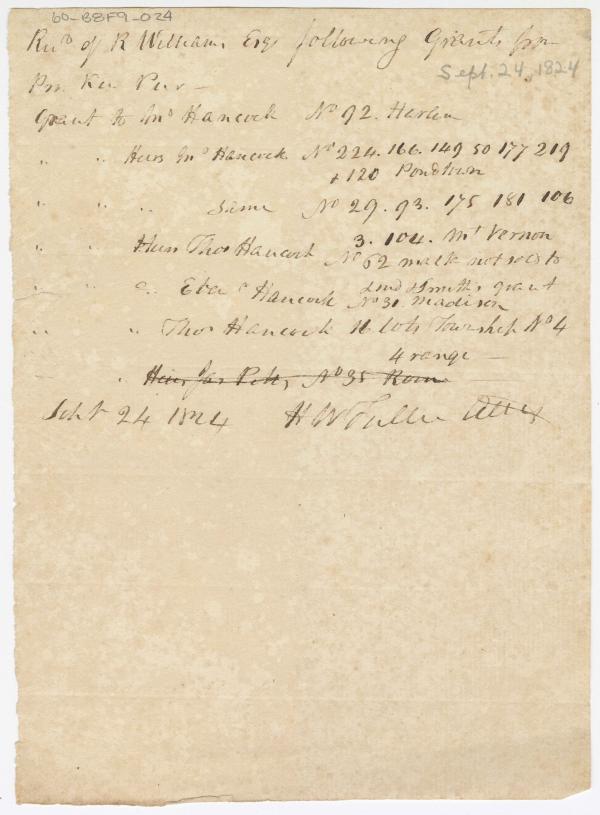 60-B8F9-024
Recd of R Williams Esqr following Grants from
Sept. 24, 1824
Pro. Ken Pur —
Grant to Jno Hancock No 92. Harlem
" " Heirs Jno Hancock No 224. 166. 149 50 177 219
+ 120 Pondtown
" " " Same No 29. 93. 175 181 106
3. 104. Mt Vernon
" " Heirs Thos Hancock No 62
" " Ebenr Hancock No 31. Madison
" " Thos Hancock 16 lots Township No 4
4 range —
" Heirs Jas Pitts No 35 Rome
Sept 24 1824 H W Fuller Atty